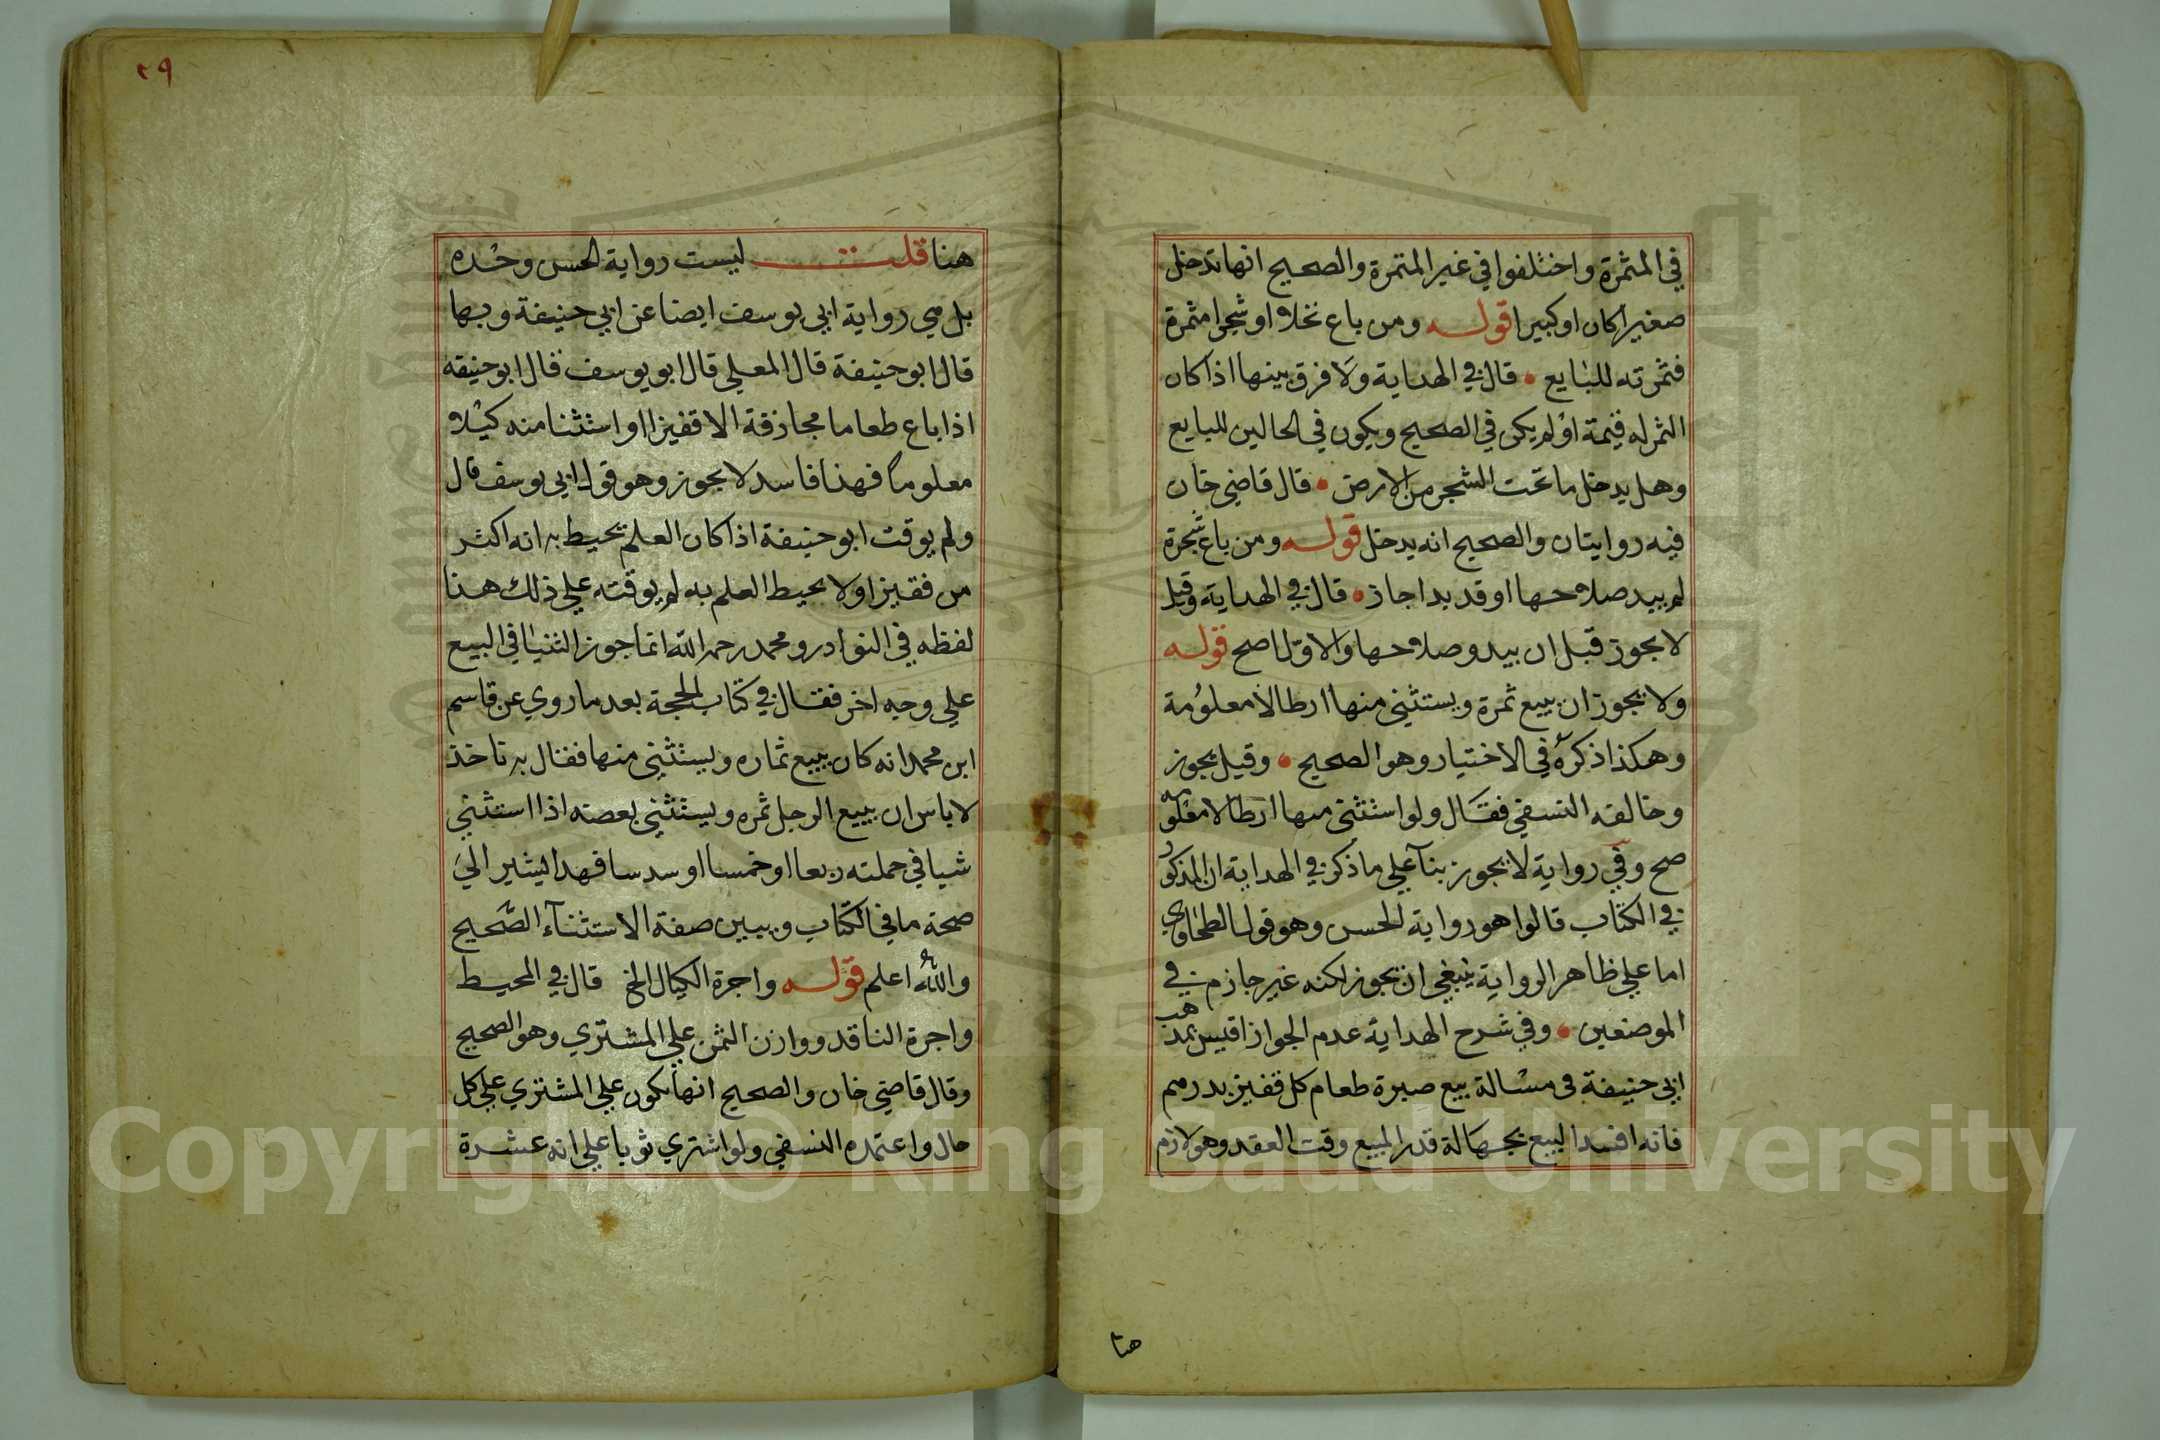 في المثمرة واختلفوا في غير المثمرة والصحيح انها تدخل
صغيرا كان او كبيرا قوله ومن باع نخلا او شجرا مثمرة
فثمرته للبايع • قال في الهداية ولا فرق بينها اذا كان
الثمر له قيمة او لم يكن في الصحيح ويكون في الحالين للبايع
وهل يدخل ما تحت الشجر من الارض • قال قاضي خان
فيه روايتان والصحيح انه يدخل قوله ومن باع ثمرة
لم يبد صلاحها او قد بدا جاز • قال في الهداية وقيل
لا يجوز قبل ان يبدو صلاحها والاول اصح قوله
ولا يجوز ان يبيع ثمرة ويستثني منها ارطالا معلومة
وهكذا ذكره في الاختيار وهو الصحيح • وقيل يجوز
وخالفه النسفي فقال ولو استثنى منها ارطالا معلومه
صح وفي رواية لا يجوز بنآ علي ما ذكر في الهداية ان المذكور
في الكتاب قالوا هو رواية الحسن وهو قول الطحاوي
اما علي ظاهر الرواية ينبغي ان يجوز لكنه غير جازم في
الموضعين • وفي شرح الهداية عدم الجواز اقيس بمذهب
ابي حنيفة في مسالة بيع صبرة طعام كل قفيز بدرهم
فانه افسد البيع بجهالة قدر المبيع وقت العقد وهو لازم
هنا
٢٩
هنا قلت ليست رواية الحسن وحده
بل هي رواية ابي يوسف ايضا عن ابي حنيفة وبها
قال ابو حنيفة قال المعلي قال ابو يوسف قال ابو حنيفة
اذا باع طعاما مجازفة الا قفيزا او استثنا منه كيلا
معلوما فهذا فاسد لا يجوز وهو قول ابي يوسف قال
ولم يوقت ابو حنيفة اذا كان العلم يحيط به انه اكثر
من قفيز او لا يحيط العلم به لم يوقته علي ذلك هذا
لفظه في النوادر ومحمد رحمه الله انما جوز الثنيا في البيع
علي وجه اخر فقال في كتاب الحجة بعد ما روي عن قاسم
ابن محمد انه كان يبيع ثماره ويستثني منها فقال به ناخذ
لا باس ان يبيع الرجل ثمره ويستثني بعضه اذا استثني
شيا في جملته ربعا او خمسا او سدسا فهذا يشير الي
صحة ما في الكتاب ويبين صفة الاستثنآء الصحيح
والله اعلم قوله واجرة الكيال الخ قال في المحيط
واجرة الناقد ووازن الثمن علي المشتري وهو الصحيح
وقال قاضي خان والصحيح انها تكون علي المشتري علي كل
حال واعتمده النسفي ولو اشتري ثوبا علي انه عشرة
Copyright © King Saud University